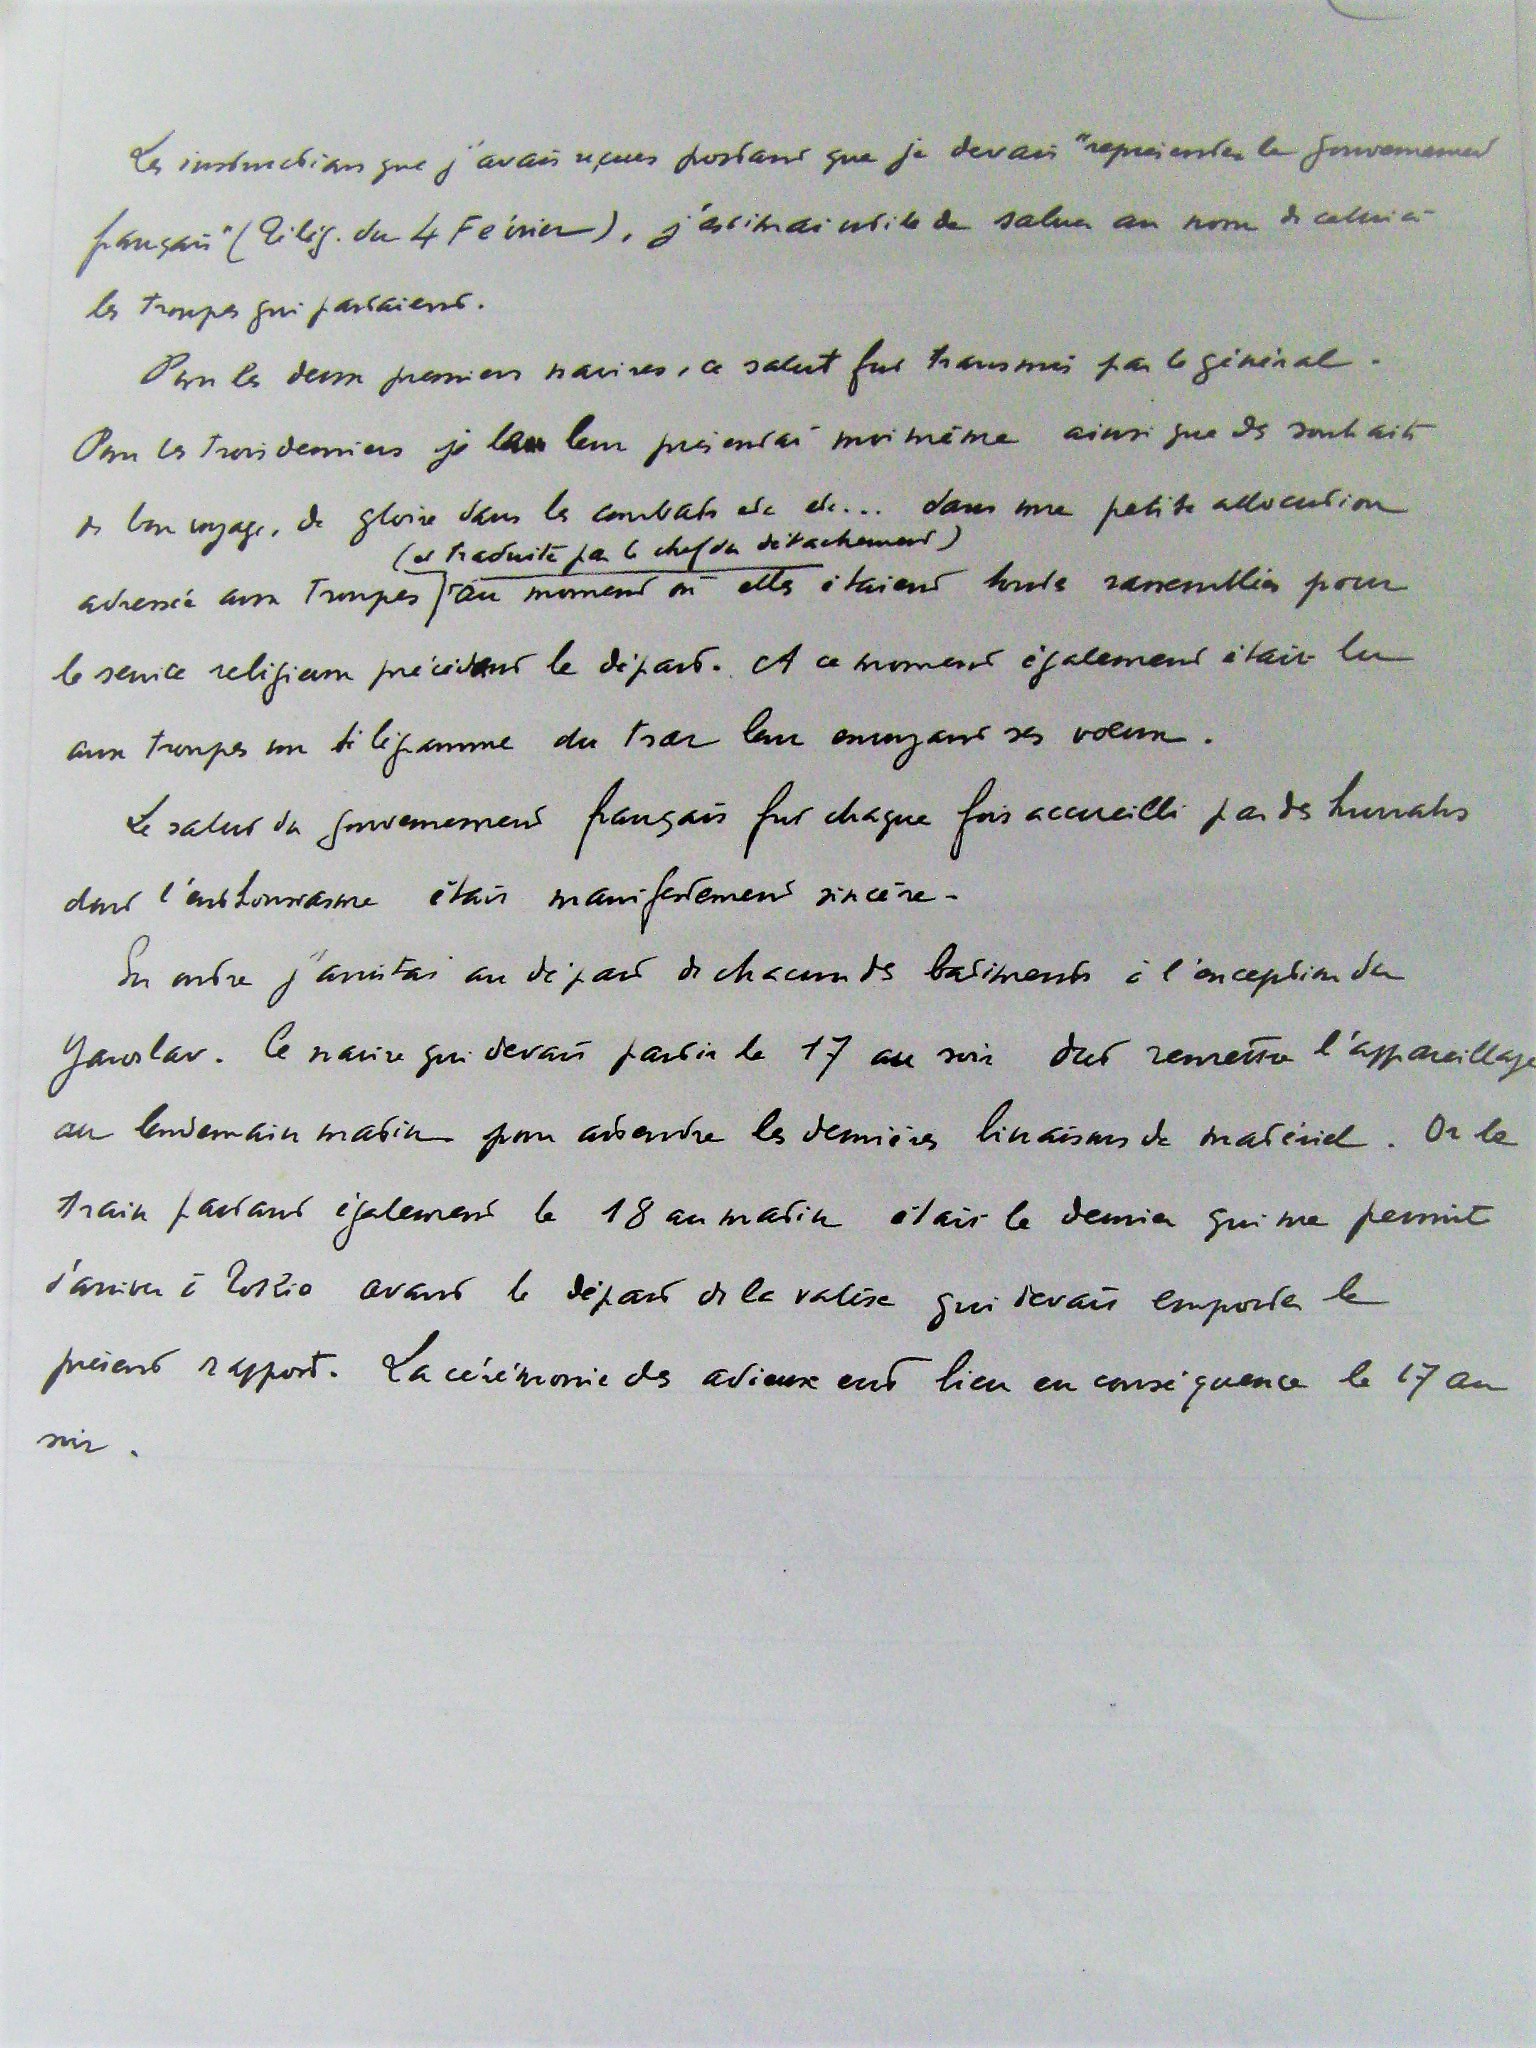 Les instructions que j'avais reçues portant que je devais "représenter le gouvernement
français" (Télég. du 4 Février), j'estimai utile de saluer au nom de celui-ci
les troupes qui partaient.
Pour les deux premiers navires, ce salut fut transmis par le général.
Pour les trois derniers je leur présentai moi même ainsi que des souhaits
de bon voyage, de gloire dans les combats etc etc... dans une petite allocution
(et traduite par le chef du détachement)
adressée aux troupes au moment où elles étaient toutes rassemblées pour
le service religieux précédant le départ. A ce moment également était lu
aux troupes un télégramme du tsar leur envoyant ses voeux.
Le salut du gouvernement français fut chaque fois accueilli par des hurrahs
dont l'enthousiasme était manifestement sincère.
En outre j'assistai au départ de chacun des batiments à l'exception du
Yaroslav. Ce navire qui devait partir le 17 au soir dut remettre l'appareillage
au lendemain matin pour attendre les dernières livraisons de matériel. Or le
train partant également le 18 au matin était le dernier qui me permit
d'arriver à Tokio avant le départ de la valise qui devait emporter le
présent rapport. La cérémonie des adieux eut lieu en conséquence le 17 au
soir.